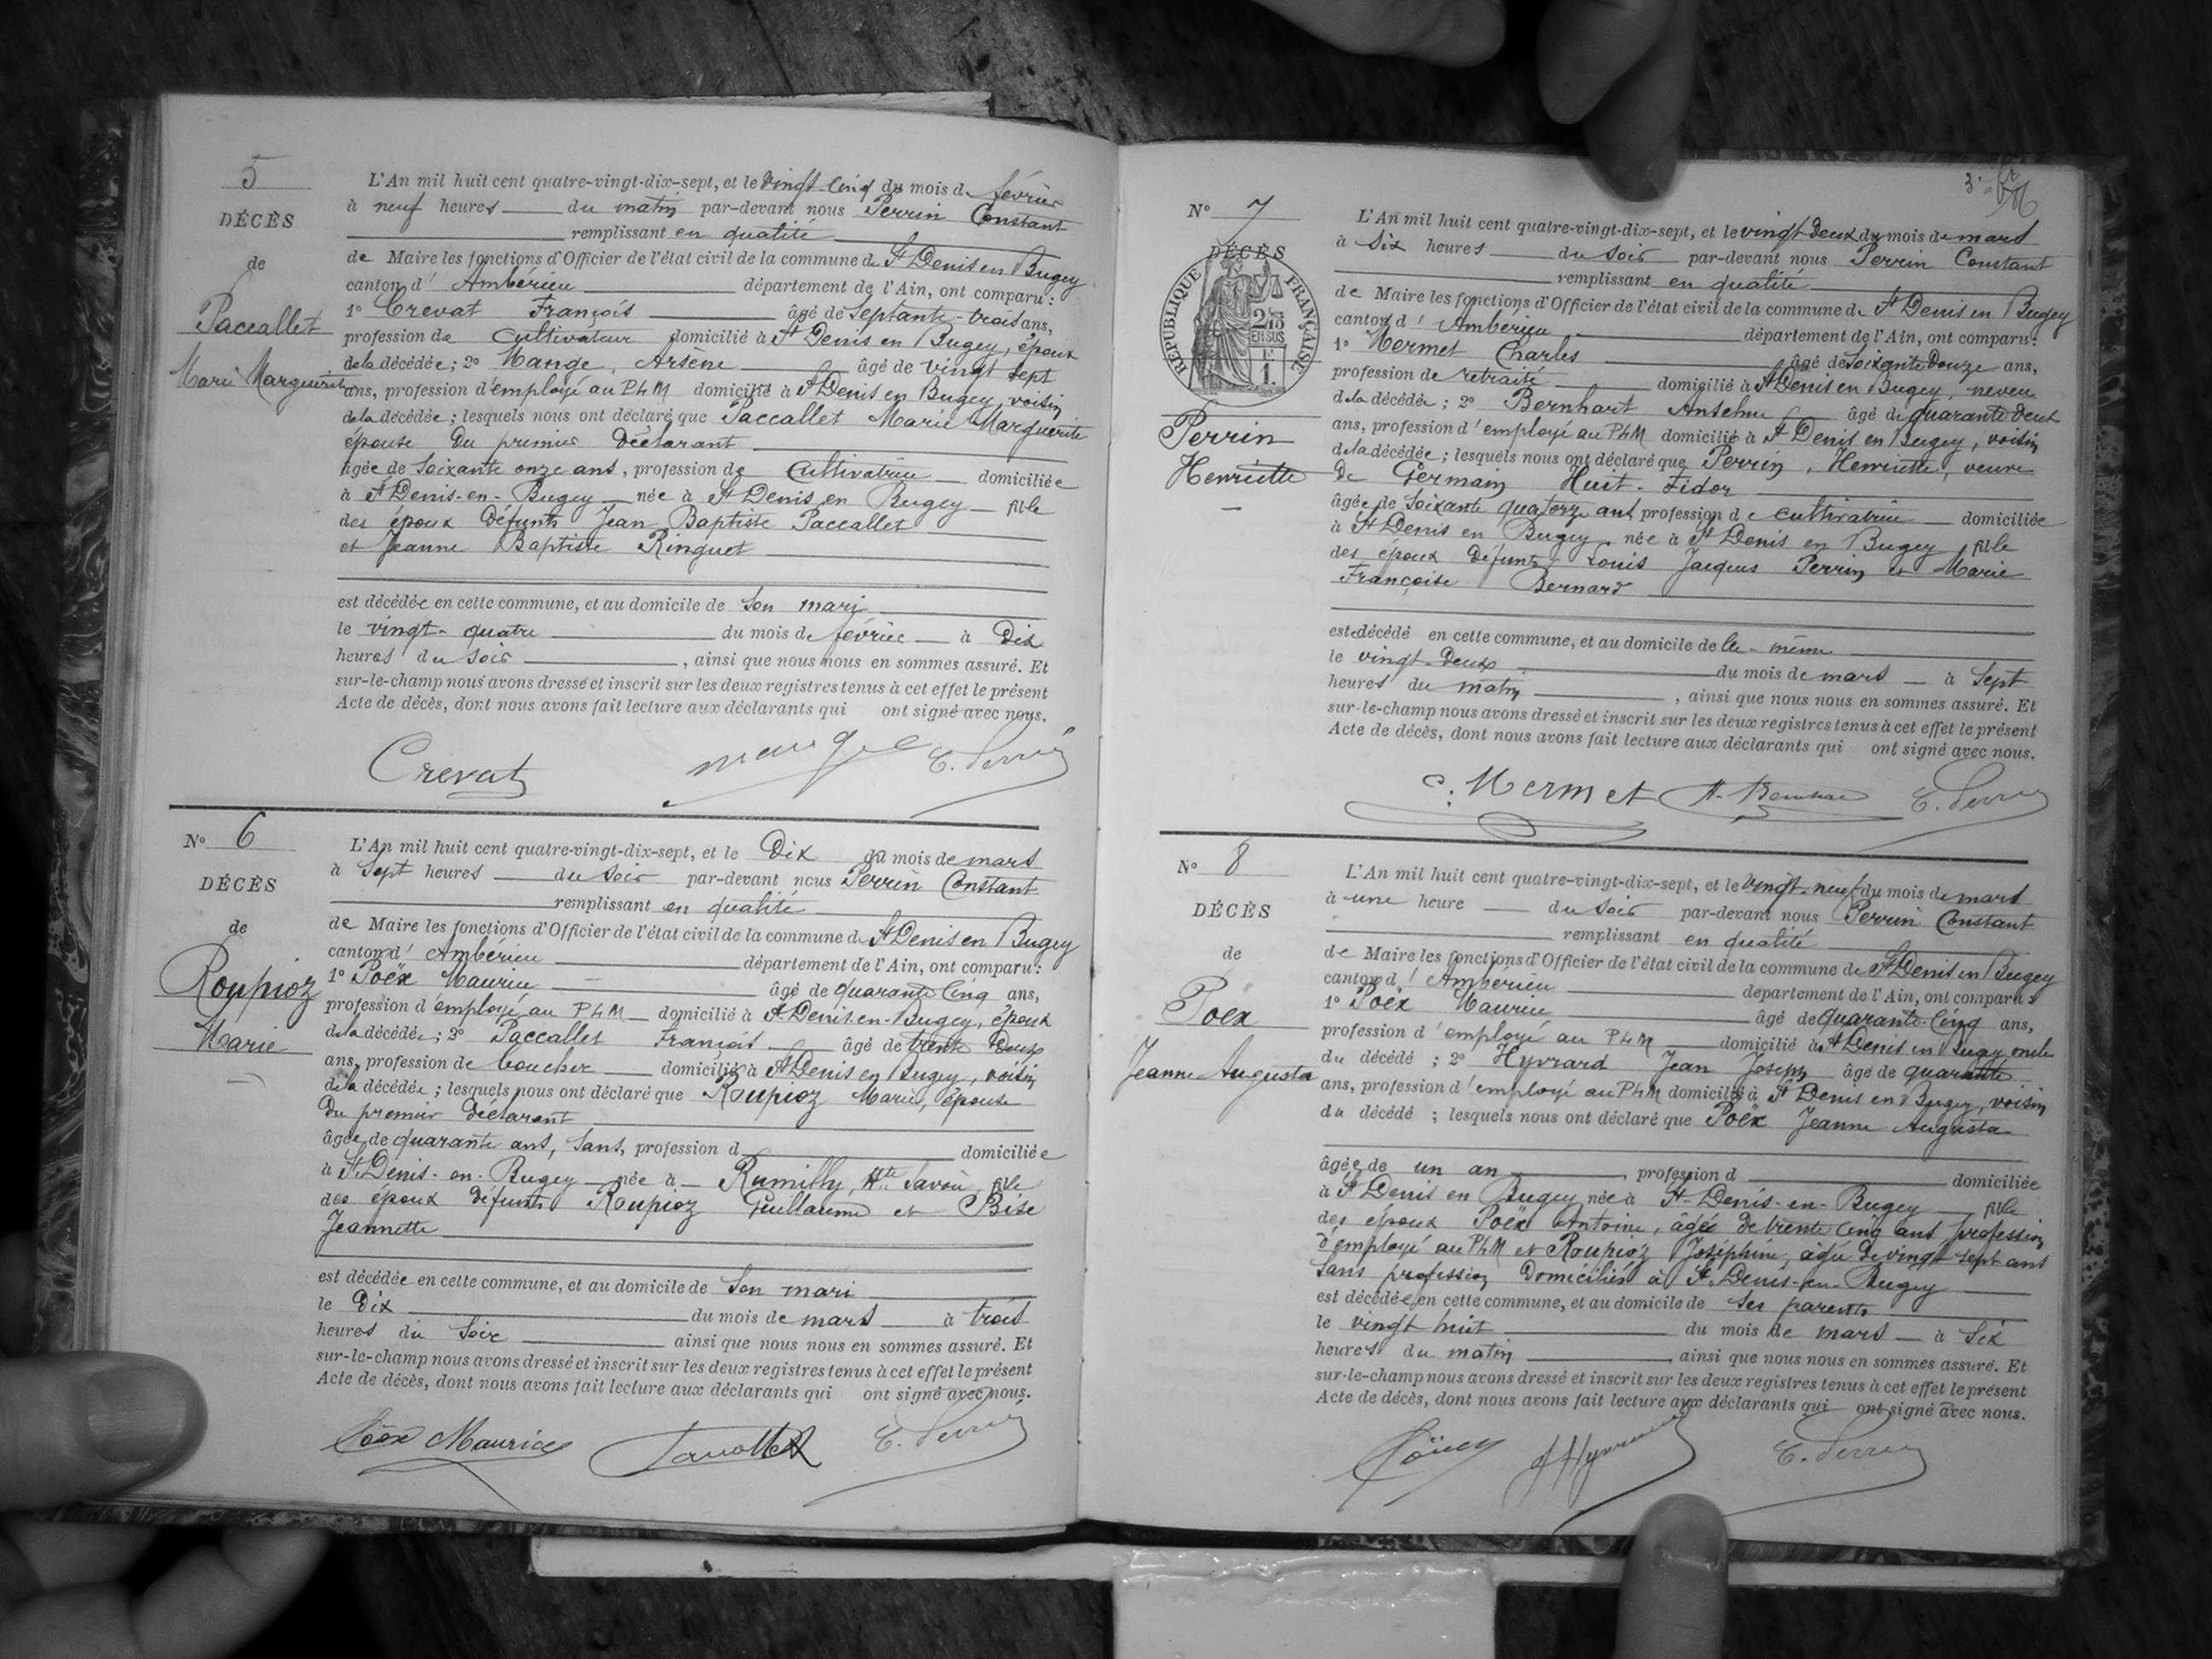 5
DÉCÈS
de
Paccallet
Marie Marguerite
L'An mil huit cent quatre-vingt-dix-sept, et le vingt-cinq du mois de février
à neuf heures du matin par-devant nous Perrin Constant
remplissant en qualité
de Maire les fonctions d'Officier de l'état civil de la commune de St Denis en Bugey
canton d' Ambérieu département de l'Ain, ont comparu :
1o Crevat François âgé de Septante-trois ans,
profession de cultivateur domicilié à St Denis en Bugey, époux
de la décédée ; 2o Mange, Arsène âgé de vingt sept
ans, profession d'employé au PLM domicilié à St Denis en Bugey, voisin
de la décédée ; lesquels nous ont déclaré que Paccallet Marie Marguerite
épouse du premier déclarant
âgée de soixante onze ans, profession de cultivatrice domiciliée
à St Denis-en-Bugey née à St Denis en Bugey fille
des époux défunts Jean Baptiste Paccallet
et Jeanne Baptiste Ringuet
est décédée en cette commune, et au domicile de son mari
le vingt-quatre du mois de février à dix
heures du soir , ainsi que nous nous en sommes assuré. Et
sur-le-champ nous avons dressé et inscrit sur les deux registres tenus à cet effet le présent
Acte de décès, dont nous avons fait lecture aux déclarants qui ont signé avec nous.
Crevat mange C. Perrin
No 6
DÉCÈS
de
Roupioz
Marie
L'An mil huit cent quatre-vingt-dix-sept, et le dix du mois de mars
à sept heures du soir par-devant nous Perrin Constant
remplissant en qualité
de Maire les fonctions d'Officier de l'état civil de la commune de St Denis en Bugey
canton d' Ambérieu département de l'Ain, ont comparu :
1o Poëx Maurice âgé de quarante cinq ans,
profession d'employé au PLM domicilié à St Denis-en-Bugey, époux
de la décédée ; 2o Paccallet François âgé de trente deux
ans, profession de boucher domicilié à St Denis en Bugey, voisin
de la décédée ; lesquels nous ont déclaré que Roupioz Marie, épouse
du premier déclarant
âgée de quarante ans, sans, profession d domiciliée
à St Denis-en-Bugey née à Rumilly, Hte Savoie fille
des époux défunts Roupioz Guillaume et Bise
Jeannette
est décédée en cette commune, et au domicile de son mari
le dix du mois de mars à trois
heures du soir ainsi que nous nous en sommes assuré. Et
sur-le-champ nous avons dressé et inscrit sur les deux registres tenus à cet effet le présent
Acte de décès, dont nous avons fait lecture aux déclarants qui ont signé avec nous.
Poëx Maurice C. Perrin
3.
No 7
DÉCÈS
RÉPUBLIQUE FRANÇAISE
EN SUS
Perrin
Henriette
L'An mil huit cent quatre-vingt-dix-sept, et le vingt-deux du mois de mars
à six heures du soir par-devant nous Perrin Constant
remplissant en qualité
de Maire les fonctions d'Officier de l'état civil de la commune de St Denis en Bugey
canton d' Ambérieu département de l'Ain, ont comparu :
1o Mermet Charles âgé de soixante douze ans,
profession de retraité domicilié à St Denis en Bugey, neveu
de la décédée ; 2o Bernhart Anselme âgé de quarante deux
ans, profession d'employé au PLM domicilié à St Denis en Bugey, voisin
de la décédée ; lesquels nous ont déclaré que Perrin, Henriette, veuve
de Germain Huit-Fidor
âgée de soixante quatorze ans, profession de cultivatrice domiciliée
à St Denis en Bugey née à St Denis en Bugey fille
des époux défunts Louis Jacques Perrin et Marie
Françoise Bernard
est décédé en cette commune, et au domicile de le-même
le vingt-deux du mois de mars à sept
heures du matin , ainsi que nous nous en sommes assuré. Et
sur-le-champ nous avons dressé et inscrit sur les deux registres tenus à cet effet le présent
Acte de décès, dont nous avons fait lecture aux déclarants qui ont signé avec nous.
C. Mermet C. Perrin
No 8
DÉCÈS
de
Poëx
Jeanne Augusta
L'An mil huit cent quatre-vingt-dix-sept, et le vingt-neuf du mois de mars
à une heure du soir par-devant nous Perrin Constant
remplissant en qualité
de Maire les fonctions d'Officier de l'état civil de la commune de St Denis en Bugey
canton d' Ambérieu département de l'Ain, ont comparu :
1o Poëx Maurice âgé de quarante-cinq ans,
profession d'employé au PLM domicilié à St Denis en Bugey oncle
du décédé ; 2o Hyvrard Jean Joseph âgé de quarante
ans, profession d'employé au PLM domicilié à St Denis en Bugey, voisin
du décédé ; lesquels nous ont déclaré que Poëx Jeanne Augusta
âgée de un an , profession d domiciliée
à St Denis en Bugey née à St-Denis-en-Bugey fille
des époux Poëx Antoine, âgée de trente cinq ans profession
d'employé au PLM et Roupioz Joséphine, âgée de vingt-sept ans
sans profession domiciliés à St Denis-en-Bugey
est décédée en cette commune, et au domicile de ses parents
le vingt huit du mois de mars à six
heures du matin , ainsi que nous nous en sommes assuré. Et
sur-le-champ nous avons dressé et inscrit sur les deux registres tenus à cet effet le présent
Acte de décès, dont nous avons fait lecture aux déclarants qui ont signé avec nous.
C. Perrin